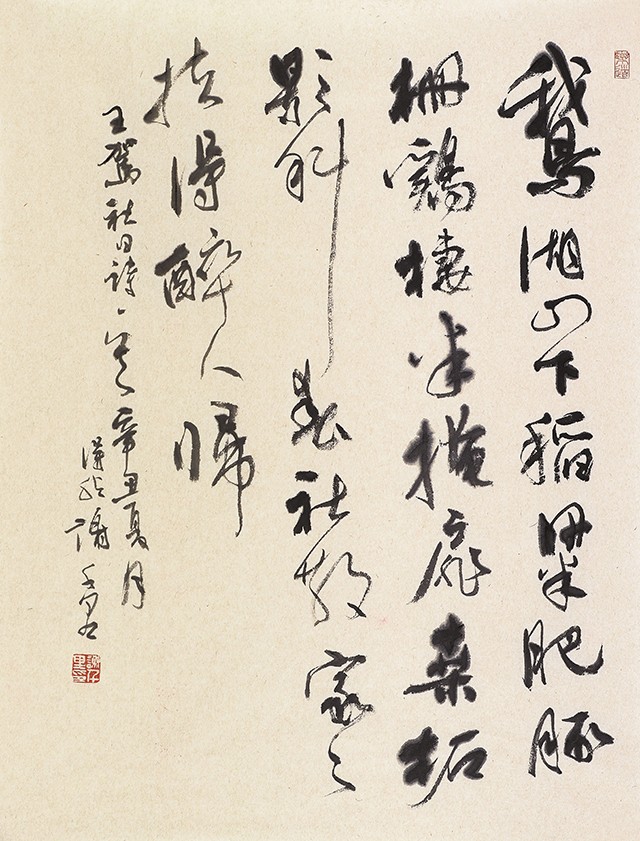 鵞湖山下稻粱肥豚
柵鷄棲半掩扉桑柘
影斜春社散家々
扶得醉人歸
王駕社日詩一首辛丑夏月
謝